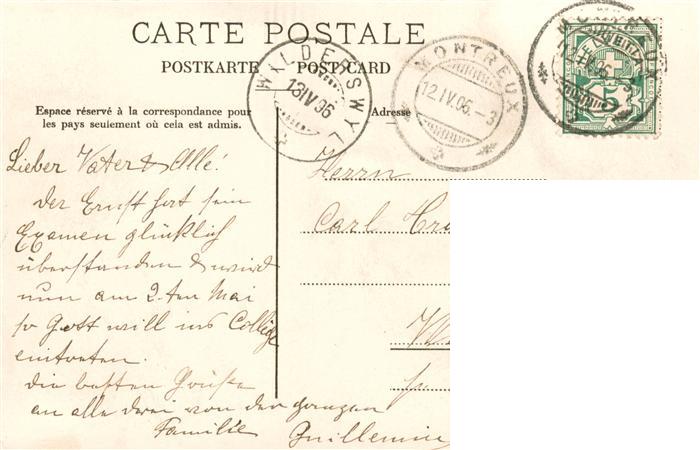 CARTE POSTALE
POSTKARTE POST-CARD
Espace réservé à la correspondance pour
les pays seulement où cela est admis.
Adresse
WILDERSWYL
13 IV 06
MONTREUX
12.IV.06.-3
MONTREUX
12.IV.06.-3
HELVETIA
5
Lieber Vater & Alle!
Der Ernst hat sein
Examen glücklich
überstanden & wird
nun am 2.ten Mai
so Gott will ins Collège
eintreten.
die besten Grüße
an alle drei von der ganzen
Familie Guillemin
Herrn
Carl